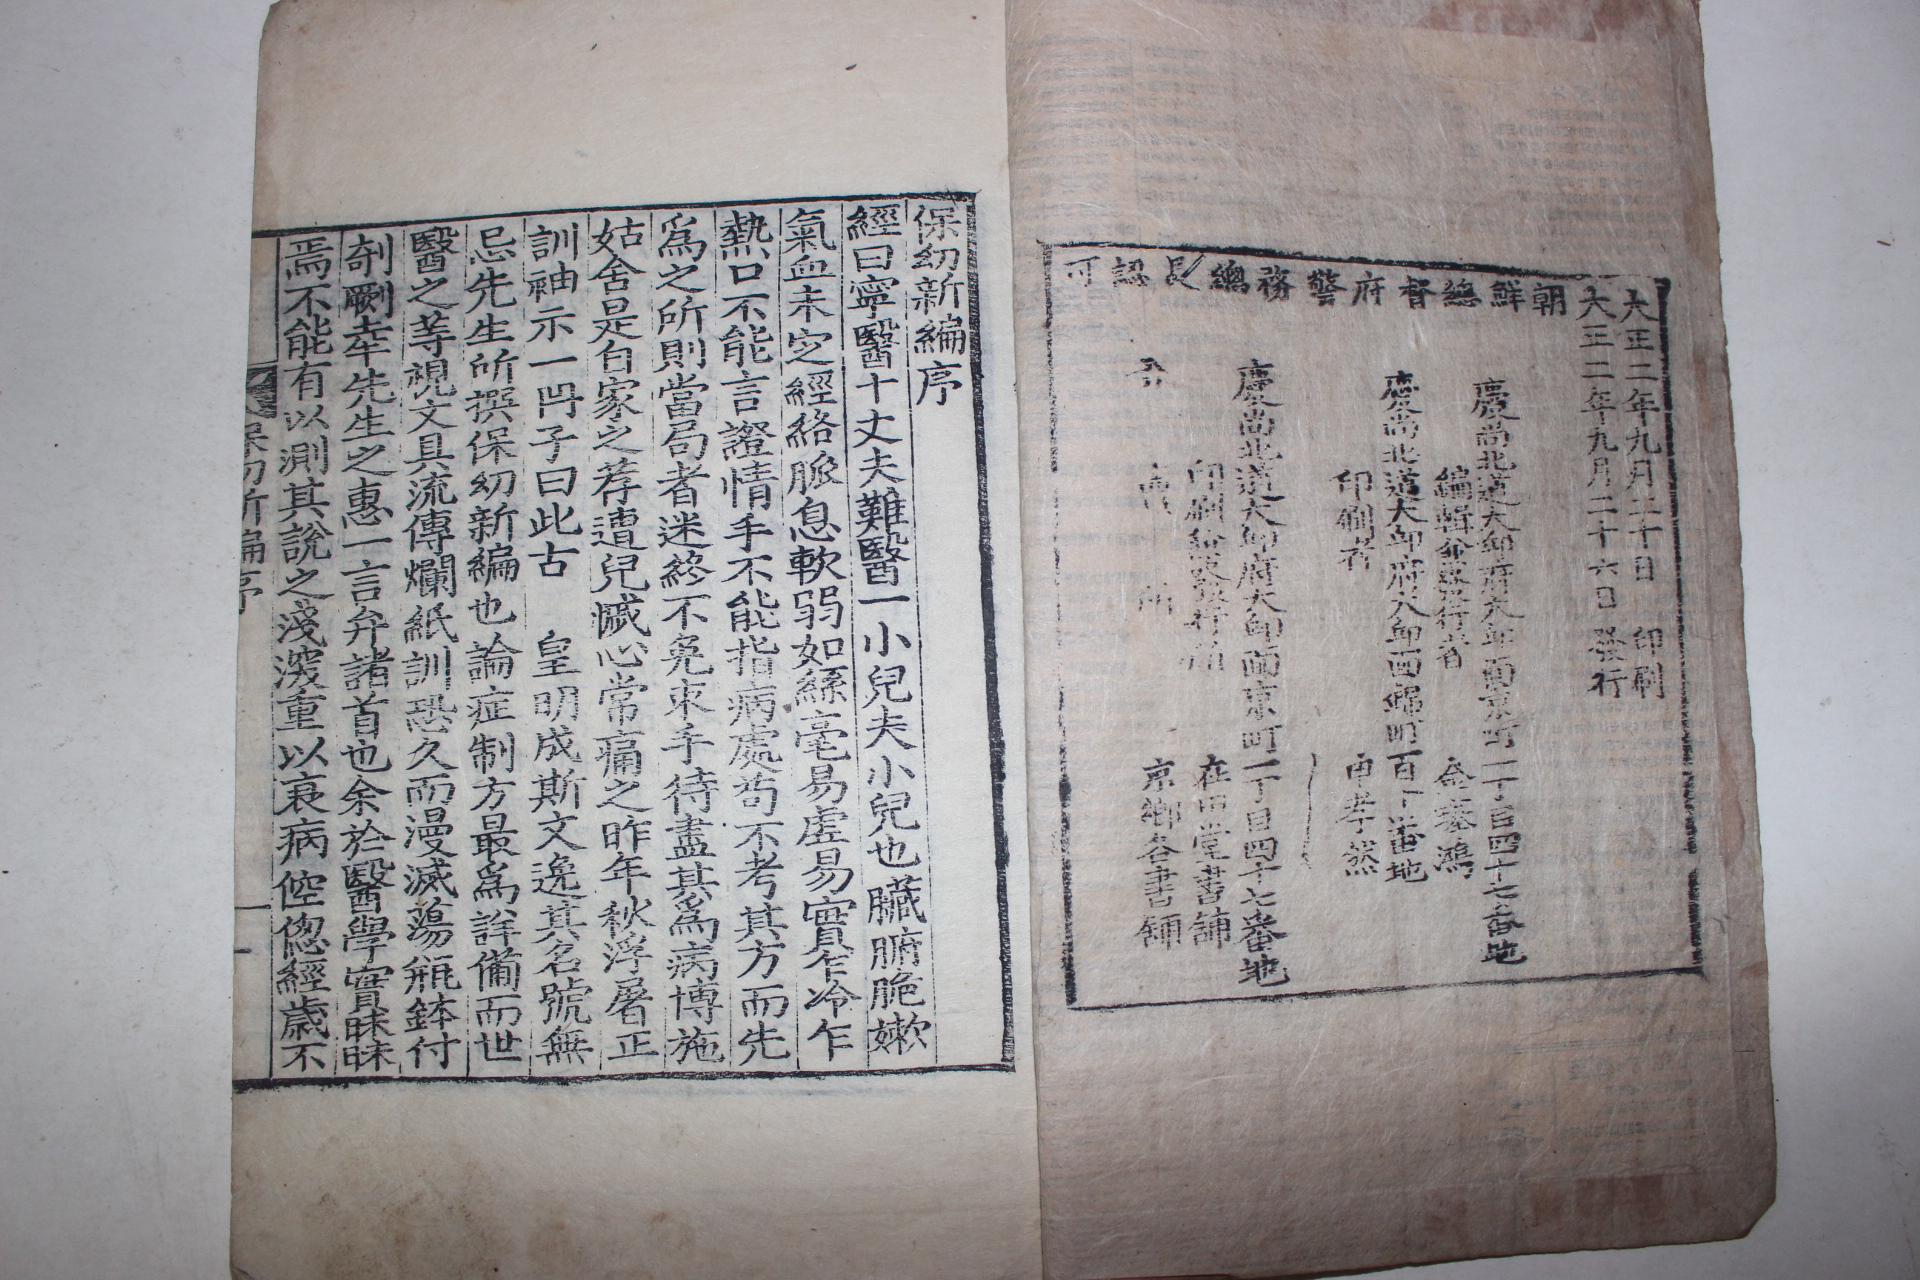 朝鮮總督府警務總長認可
大正二年九月二十日 印刷
大正二年九月二十六日發行
慶尚北道大邱府大邱面京町一丁目四十七番地
編輯兼發行者 金璂鴻
慶尚北道大邱府大邱面鄉町百丁番地
印刷者 申孝然
慶尚北道大邱府大邱面京町一丁目四十七番地
印刷兼發行所 在田堂書舖
賣所 京鄉各書舖
保幼新編序
經曰寧醫十丈夫難醫一小兒夫小兒也臟腑脆嫰
氣血未定經絡脈息軟弱如絲毫易虛易實乍冷乍
熱口不能言證情手不能指病處苟不考其方而先
爲之所則當局者迷終不免束手待盡其爲病博施
姑舍是自家之荐遭兒慽心常痛之昨年秋浮屠正
訓袖示一冊子曰此古 皇明成斯文逸其名號無
忌先生所撰保幼新編也論症制方最爲詳備而世
醫之等視文具流傳爛紙訓恐久而漫滅蕩瓶鉢付
剞劂幸先生之惠一言弁諸首也余於醫學實昧昧
焉不能有以測其說之淺深重以衰病倥傯經歲不
保幼新編序